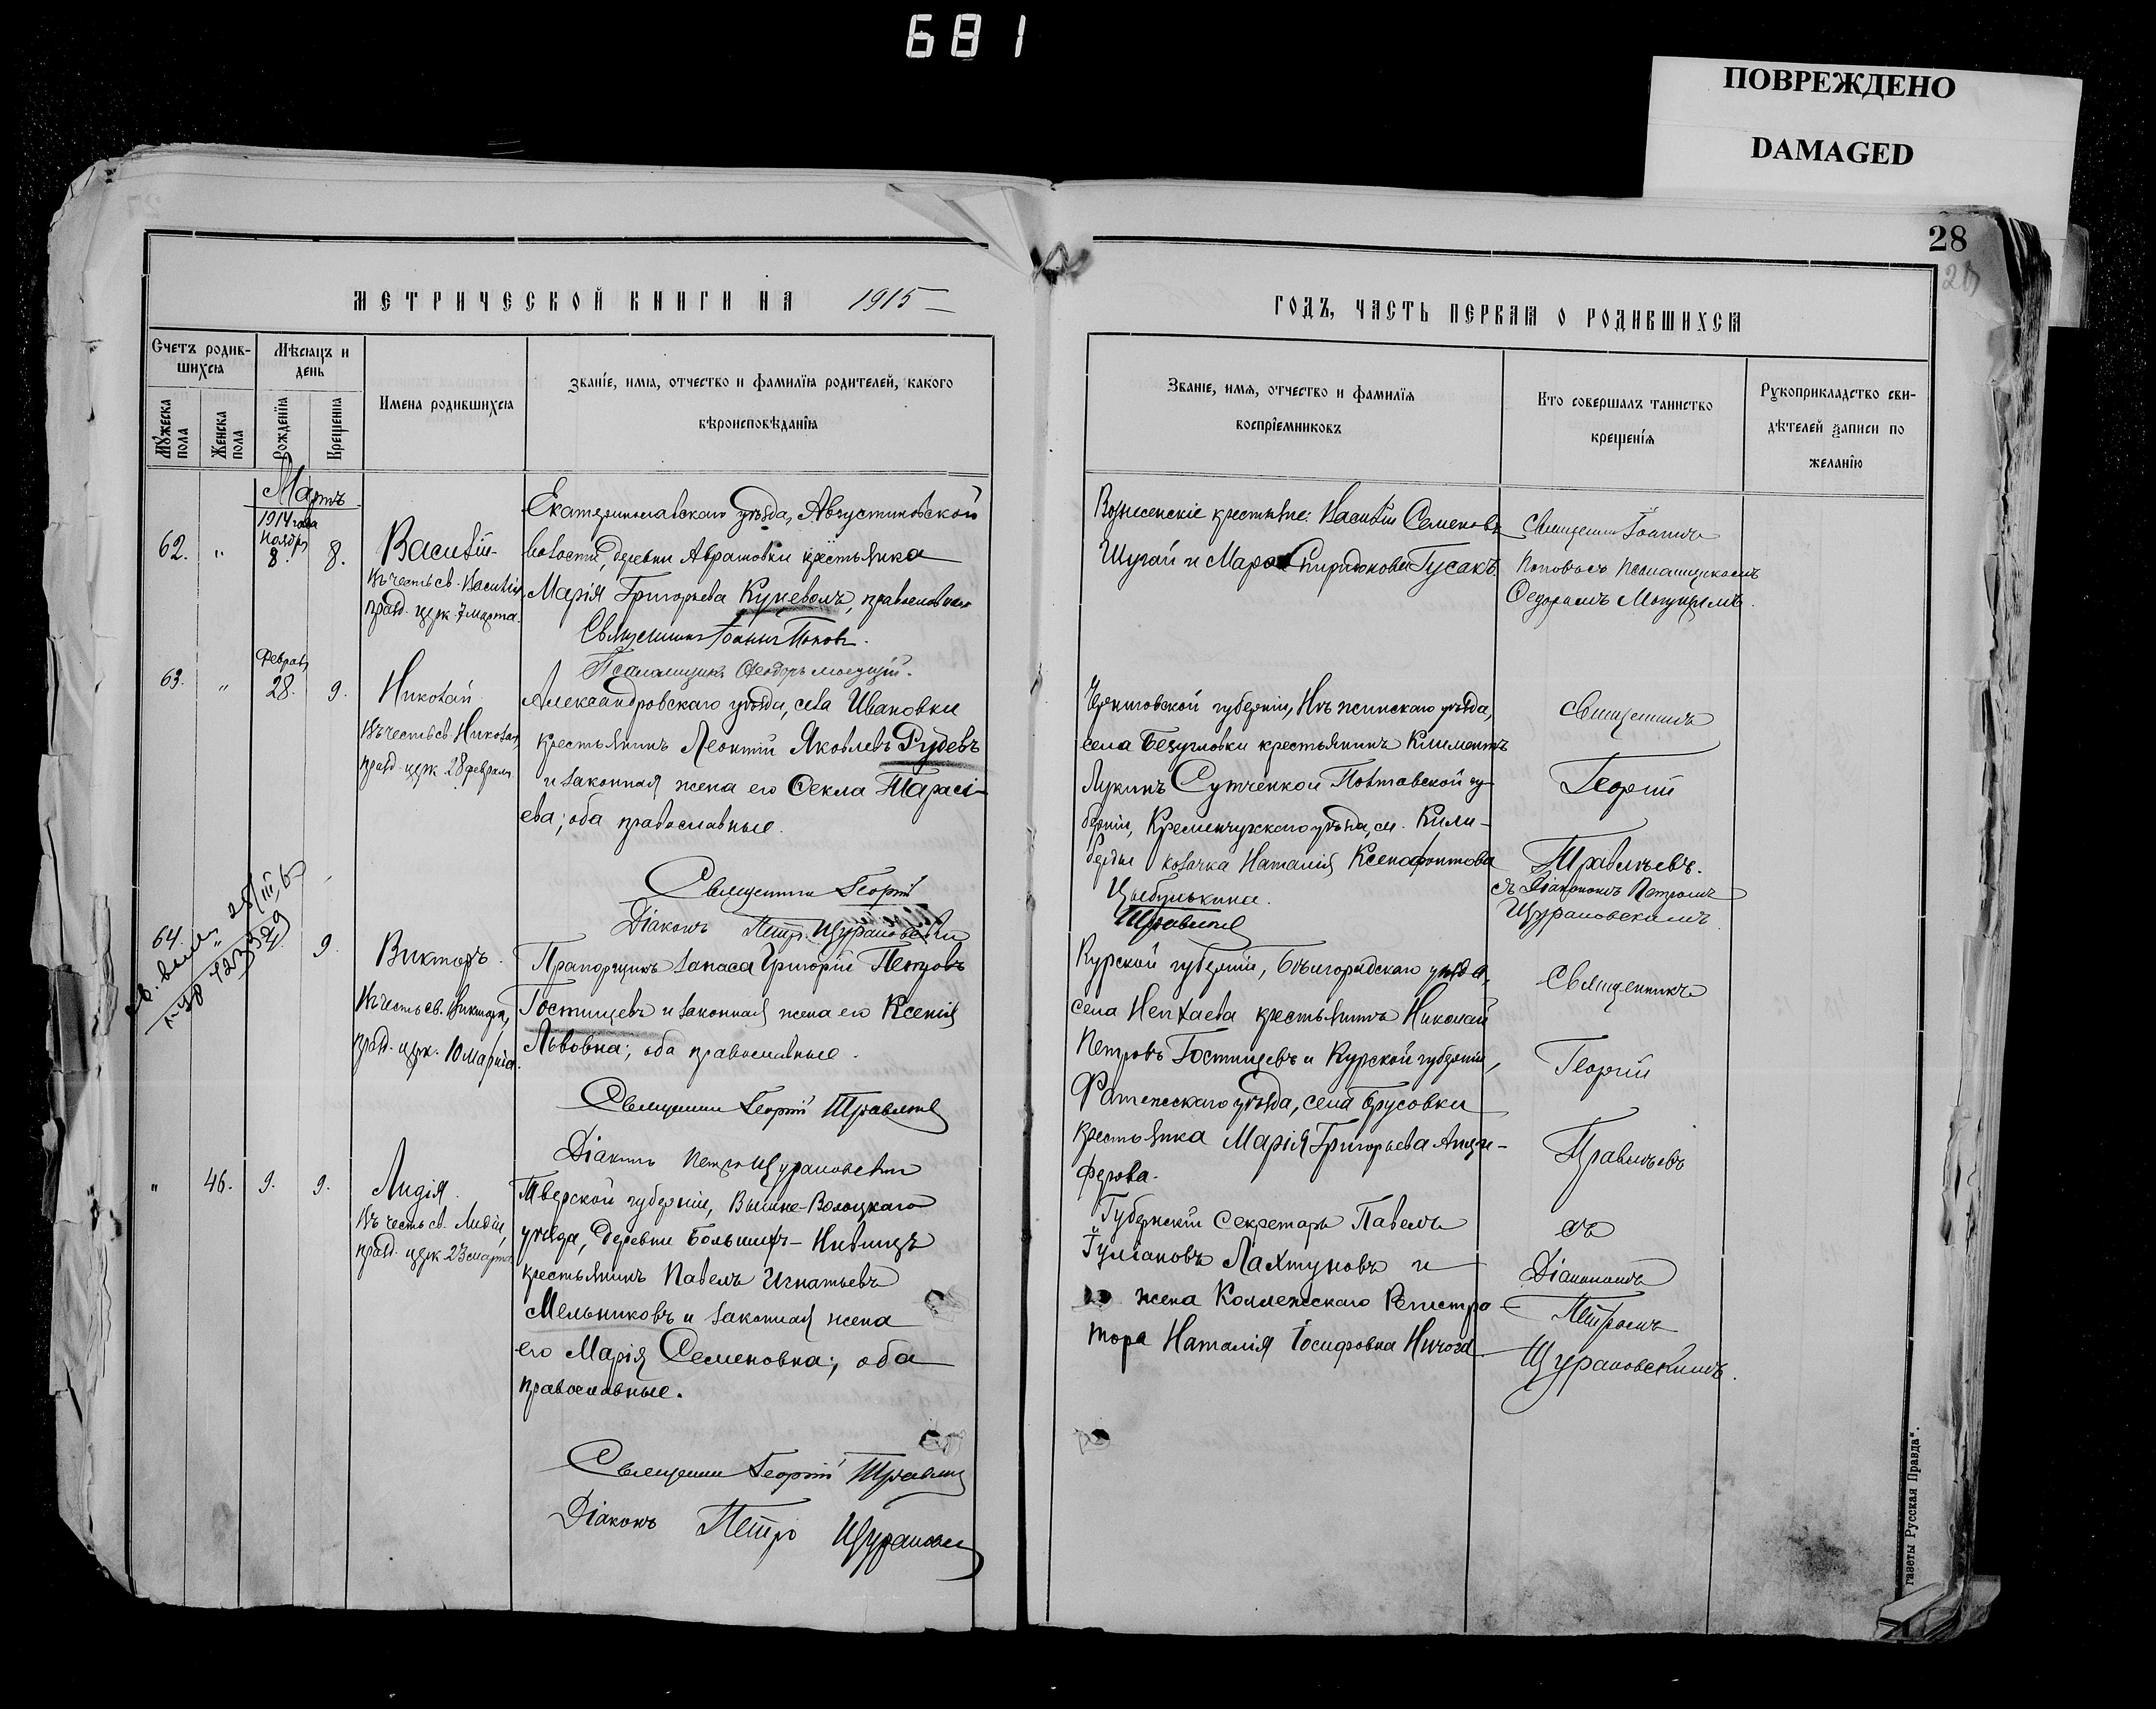 681
ПОВРЕЖДЕНО
DAMAGED
28
МЕТРИЧЕСКОЙ КНИГИ НА 1915
Счетъ родив-
шихся
Мѣсяцъ и
день
Имена родившихся
Званіе, имя, отчество и фамилія родителей, какого
вѣроисповѣданія
Мужеска
пола
Женска
пола
Рожденія
Крещенія
Мартъ
1914 года
Ноября
62. " 8. 8.
Василій
Въ честь св. Василія,
празд. церк. 7 марта.
Екатеринославскаго уѣзда, Августиновской
волости, деревни Аврамовки крестьянка
Марія Григорьева Куцеволъ, православная
Священникъ Іоаннъ Поповъ.
Псаломщикъ Ѳеодоръ Могуцій.
Феврал
63. " 28. 9.
Николай
Въ честь св. Николая,
празд. церк. 28 февраля.
Александровскаго уѣзда, села Ивановки
крестьянинъ Леонтій Яковлевъ Рудевъ
и законная жена его Ѳекла Тарасі-
ева; оба православные.
Священникъ Георгій
Діаконъ Петръ Щурановскій
64. " 9.
Викторъ.
Въ честь св. Виктора,
празд. церк. 10 марта.
Прапорщикъ запаса Григорій Петровъ
Гостищевъ и законная жена его Ксенія
Львовна; оба православные.
Священникъ Георгій Правлевъ
Діаконъ Петръ Щурановскій
" 46. 9. 9.
Лидія.
Въ честь св. Лидіи,
празд. церк. 23 марта
Тверской губерніи, Вышне-Волоцкаго
уѣзда, деревни Большихъ-Нивицъ
крестьянинъ Павелъ Игнатьевъ
Мельниковъ и законная жена
его Марія Семеновна; оба
православные.
Священникъ Георгій
Діаконъ Петръ Щурановскій
ГОДЪ, ЧАСТЬ ПЕРВАЯ О РОДИВШИХСЯ
Званіе, имя, отчество и фамилія
воспріемниковъ
Кто совершалъ таинство
крещенія
Рукоприкладство сви-
дѣтелей записи по
желанію
Вознесенскіе крестьяне: Василій Семеновъ
Шугай и Марѳа Спиридонова Гусакъ.
Священникъ Іоаннъ
Поповъ съ Псаломщикомъ
Ѳедоромъ Могуцимъ.
Черниговской губерніи, Нѣжинскаго уѣзда,
села Безугловки крестьянинъ Климентъ
Лукинъ Сутченко и Полтавской гу-
берніи, Кременчугскаго уѣзда, м. Кили-
берды козачка Наталія Ксенофонтова
Цыбулькина.
Священникъ
Георгій
Правлевъ.
съ Діакономъ Петромъ
Щурановскимъ.
Курской губерніи, Бѣлгородскаго уѣзда,
села Непхаева крестьянинъ Николай
Петровъ Гостищевъ и Курской губерніи,
Фатежскаго уѣзда, села Брусовки
крестьянка Марія Григорьева Анци-
ферова.
Священникъ
Георгій
Правлевъ
съ
Діакономъ
Петромъ
Щурановскимъ.
Губернскій Секретарь Павелъ
Іуліановъ Лахтуновъ и
жена Коллежскаго Регистра-
тора Наталія Іосифовна Ничога
газеты Русская Правда".